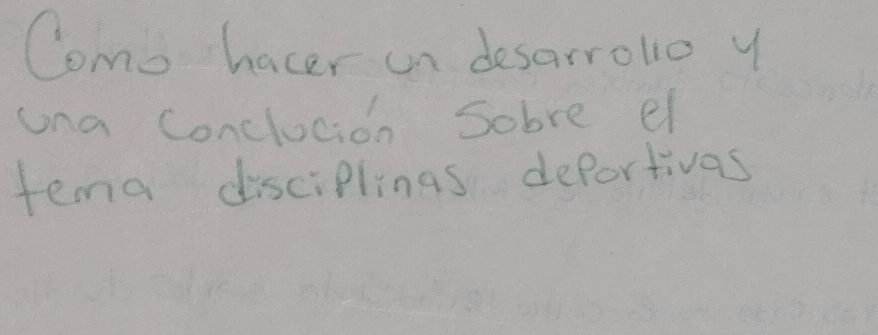 Como hacer un desarrollo y
una Conclución Sobre el
tema disciplinas deportivas